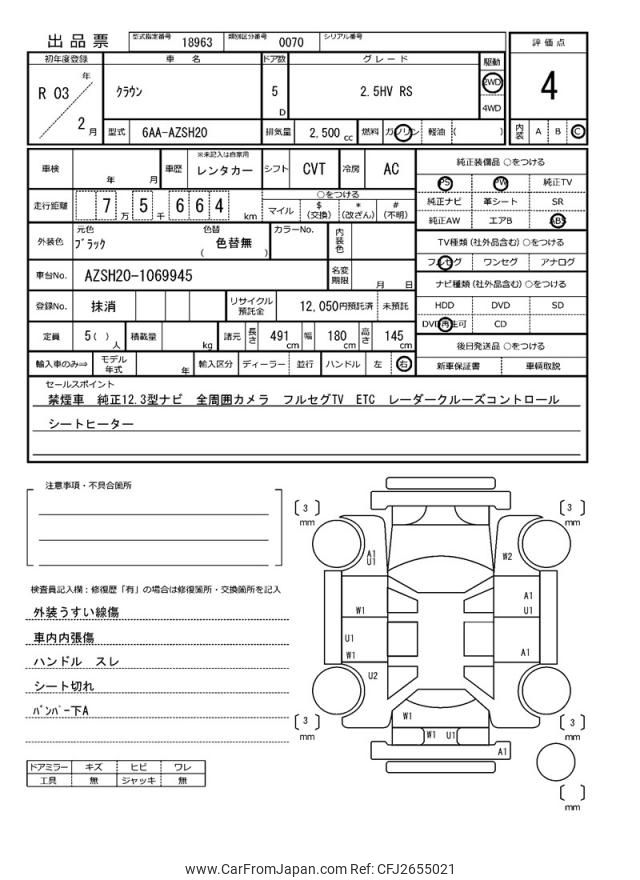 出品票
型式指定番号 18963 類別区分番号 0070 シリアル番号
評価点
4
内装 A B C
初年度登録 車名 ドア数 グレード 駆動
R 03 年 2 月
クラウン 5 D 2.5HV RS 2WD 4WD
型式 6AA-AZSH20 排気量 2,500 cc 燃料 ガソリン 軽油 ( )
車検 年 月 車歴 ※未記入は自家用 レンタカー シフト CVT 冷房 AC
走行距離 7 万 5 千 6 6 4 km
○をつける
マイル $ (交換) * (改ざん) # (不明)
外装色 元色 ブラック 色替 ( 色替無 ) カラーNo. 内装色
車台No. AZSH20-1069945 名変期限 月 日
登録No. 抹消 リサイクル預託金 12,050円預託済 未預託
定員 5( ) 人 積載量 kg 諸元 長さ 491 cm 幅 180 cm 高さ 145 cm
輸入車のみ⇒ モデル年式 年 輸入区分 ディーラー 並行 ハンドル 左 右
純正装備品 ○をつける
PS PW 純正TV
純正ナビ 革シート SR
純正AW エアB ABS
TV種類 (社外品含む) ○をつける
フルセグ ワンセグ アナログ
ナビ種類 (社外品含む) ○をつける
HDD DVD SD
DVD再生可 CD
後日発送品 ○をつける
新車保証書 車輌取説
セールスポイント
禁煙車 純正12.3型ナビ 全周囲カメラ フルセグTV ETC レーダークルーズコントロール
シートヒーター
注意事項・不具合箇所
検査員記入欄:修復歴「有」の場合は修復箇所・交換箇所を記入
外装うすい線傷
車内内張傷
ハンドル スレ
シート切れ
バンパー下A
ドアミラー キズ ヒビ ワレ
工具 無 ジャッキ 無
[ 3 ] mm
[ 3 ] mm
A1
U1
W2
W1
A1
U1
U1
W1
A1
U2
W1
W1 U1
A1
[ 3 ] mm
[ 3 ] mm
[ ] mm
www.CarFromJapan.com Ref: CFJ2655021